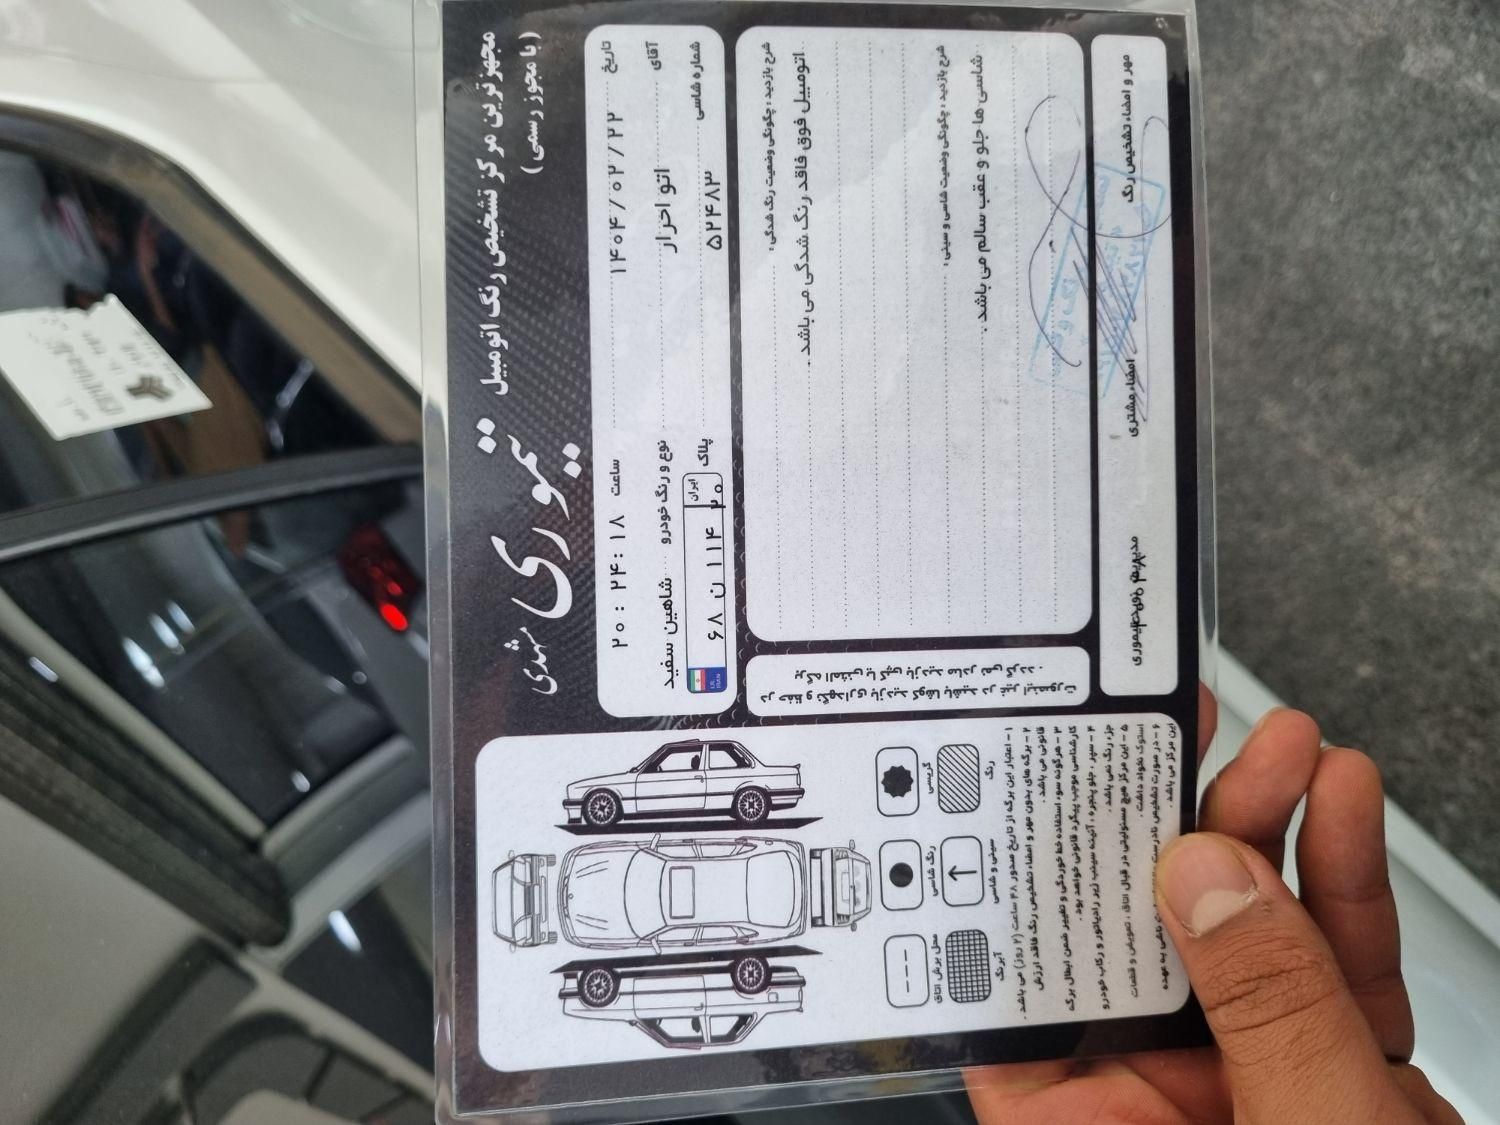 مجهزترین مرکز تشخیص رنگ اتومبیل
( با مجوز رسمی )
تیموری
مشهدی
تاریخ ۱۴۰۴/۰۲/۲۲ ساعت ۲۰:۲۴:۱۸
آقای اتو احرار نوع و رنگ خودرو شاهین سفید
شماره شاسی ۵۲۴۸۳ پلاک ۶۸ ن ۱۱۴ ایران ۲۰
I.R.
IRAN
شرح بازدید ، چگونگی وضعیت رنگ شدگی :
اتومبیل فوق فاقد رنگ شدگی می باشد .
شرح بازدید ، چگونگی وضعیت شاسی و سینی :
شاسی ها جلو و عقب سالم می باشد .
مهر و امضاء تشخیص رنگ
امضاء مشتری
در حفظ و نگهداری بازدید کوشا باشید در غیر اینصورت
برگه المثنی یا کپی بازدید صادر نمی گردد .
گریسی
رنگ
رنگ شاسی
سینی و شاسی
محل برش اتاق
آبرنگ
۱ - اعتبار این برگه از تاریخ صدور ۴۸ ساعت (۲ روز) می باشد .
۲ - برگه های بدون مهر و امضاء تشخیص رنگ فاقد ارزش
قانونی می باشد .
۳ - هرگونه سوء استفاده خط خوردگی و تغییر ضمن ابطال برگه
کارشناسی موجب پیگرد قانونی خواهد بود .
۴ - سپر ، جلو پنجره ، آئینه سینی زیر رادیاتور و رکاب خودرو
جزء رنگ نمی باشد .
۵ - این مرکز هیچ مسئولیتی در قبال اتاق ، تعویض و قطعات
استوک نخواهد داشت .
۶ - در صورت تشخیص نادرست ناشی به عهده
این مرکز می باشد .